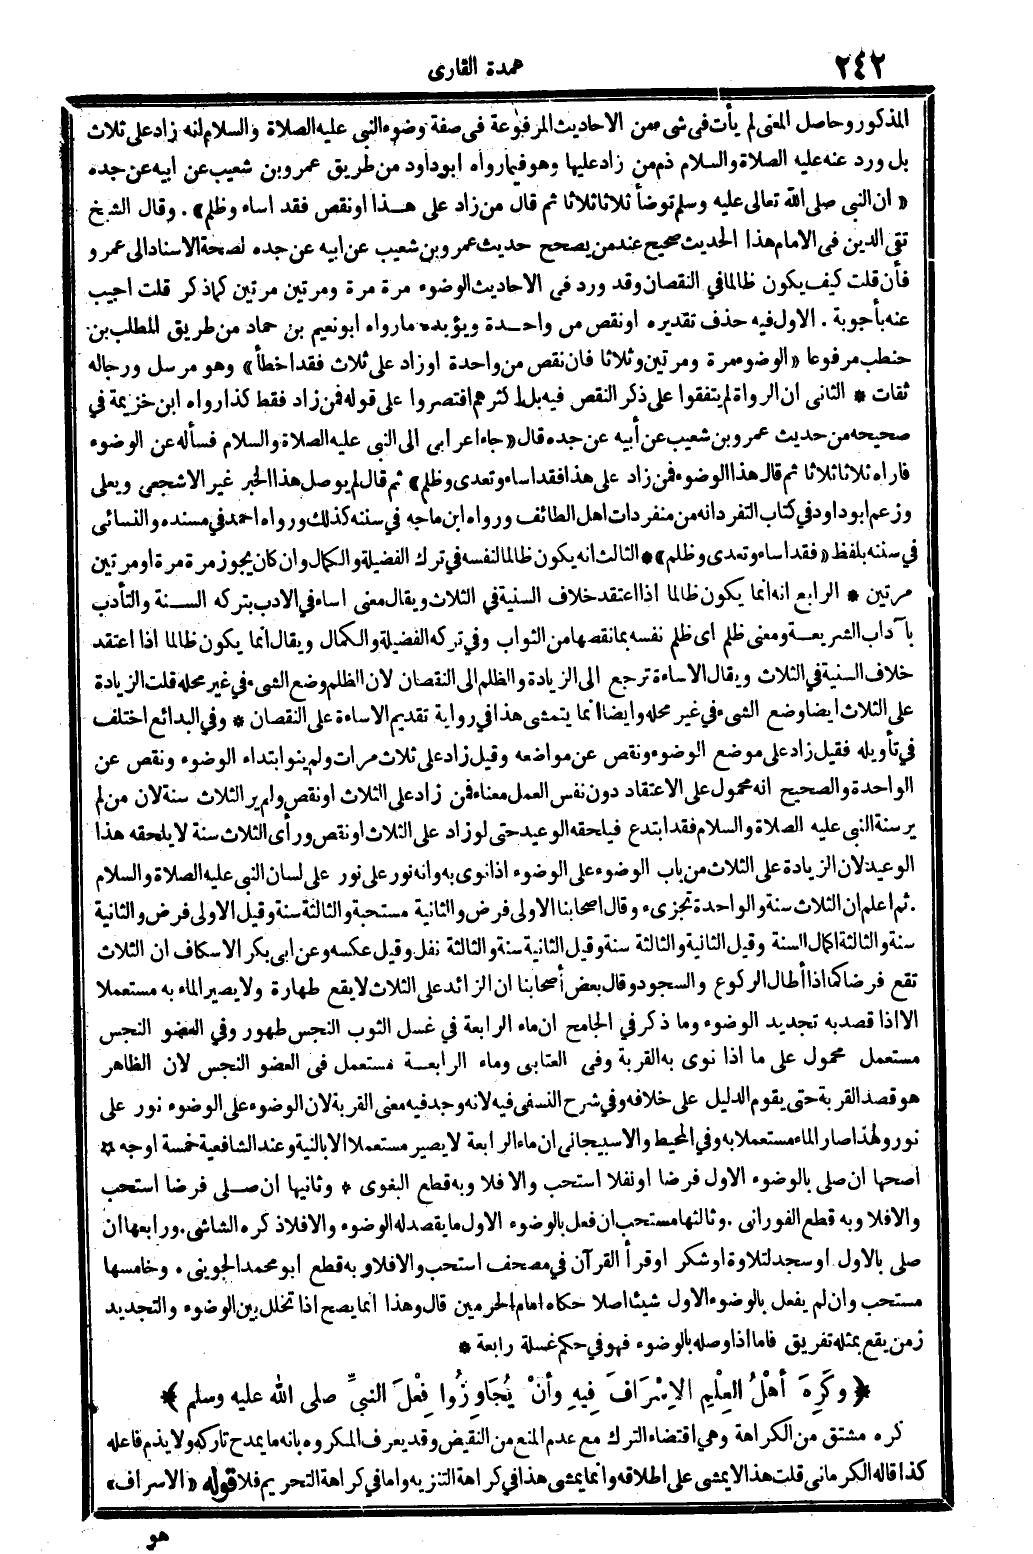 ٢٤٢
عمدة القارى
المذكور وحاصل المعنى لم يأت فى شىء من الاحاديث المرفوعة فى صفة وضوء النبى عليه الصلاة والسلام انه زاد على ثلاث
بل ورد عنه عليه الصلاة والسلام ذم من زاد عليها وهو فيما رواه ابو داود من طريق عمرو بن شعيب عن ابيه عن جده
« ان النبى صلى الله تعالى عليه وسلم توضأ ثلاثا ثلاثا ثم قال من زاد على هـــذا او نقص فقد اساء وظلم» . وقال الشيخ
تقى الدين فى الامام هذا الحديث صحيح عند من يصحح حديث عمرو بن شعيب عن ابيه عن جده لصحة الاسناد الى عمرو
فأن قلت كيف يكون ظالما فى النقصان وقد ورد فى الاحاديث الوضوء مرة مرة ومرتين مرتين كما ذكر قلت اجيب
عنه بأجوبة . الاول فيه حذف تقديره او نقص من واحـــدة ويؤيده ما رواه ابو نعيم بن حماد من طريق المطلب بن
حنطب مرفوعا «الوضوء مرة ومرتين وثلاثا فان نقص من واحدة او زاد على ثلاث فقد اخطأ» وهو مرسل ورجاله
ثقات * الثانى ان الرواة لم يتفقوا على ذكر النقص فيه بل اكثرهم اقتصروا على قوله فمن زاد فقط كذا رواه ابن خزيمة في
صحيحه من حديث عمرو بن شعيب عن أبيه عن جده قال «جاء اعرابى الى النبى عليه الصلاة والسلام فسأله عن الوضوء
فاراه ثلاثا ثلاثا ثم قال هذا الوضوء فمن زاد على هذا فقد اساء وتعدى وظلم» ثم قال لم يوصل هذا الخبر غير الاشجعى ويعلى
وزعم ابو داود في كتاب التفرد انه من منفردات اهل الطائف ورواه ابن ماجه في سننه كذلك ورواه احمد في مسنده والنسائى
في سننه بلفظ «فقد اساء وتعدى وظلم» * الثالث انه يكون ظالما لنفسه في ترك الفضيلة والكمال وان كان يجوز مرة مرة او مرتين
مرتين * الرابع انه انما يكون ظالما اذا اعتقد خلاف السنية في الثلاث ويقال معنى اساء في الادب بتركه الســنة والتأدب
بآداب الشريعــة ومعنى ظلم اى ظلم نفسه بما نقصها من الثواب وفي تركه الفضيلة والكمال ويقال انما يكون ظالما اذا اعتقد
خلاف السنية في الثلاث ويقال الاساءة ترجع الى الزيادة والظلم الى النقصان لان الظلم وضع الشىء في غير محله قلت الزيادة
على الثلاث ايضا وضع الشىء في غير محله وايضا انما يتمشى هذا في رواية تقديم الاساءة على النقصان * وفي البدائع اختلف
في تأويله فقيل زاد على موضع الوضوء ونقص عن مواضعه وقيل زاد على ثلاث مرات ولم ينو ابتداء الوضوء ونقص عن
الواحدة والصحيح انه محمول على الاعتقاد دون نفس العمل معناه فمن زاد على الثلاث او نقص ولم ير الثلاث سنة لان من لم
ير سنة النبى عليه الصلاة والسلام فقد ابتدع فيلحقه الوعيد حتى لو زاد على الثلاث او نقص ورأى الثلاث سنة لا يلحقه هذا
الوعيد لان الزيادة على الثلاث من باب الوضوء على الوضوء اذا نوى به وانه نور على نور على لسان النبى عليه الصلاة والسلام
. ثم اعلم ان الثلاث سنة والواحدة تجزىء وقال اصحابنا الاولى فرض والثانية مستحبة والثالثة سنة وقيل الاولى فرض والثانية
سنة والثالثة اكمال السنة وقيل الثانية والثالثة سنة وقيل الثانية سنة والثالثة نفل وقيل عكسه وعن ابى بكر الاسكاف ان الثلاث
تقع فرضا كما اذا أطال الركوع والسجود وقال بعض أصحابنا ان الزائد على الثلاث لا يقع طهارة ولا يصير الماء به مستعملا
الا اذا قصد به تجديد الوضوء وما ذكر في الجامع ان ماء الرابعة في غسل الثوب النجس طهور وفي العضو النجس
مستعمل محمول على ما اذا نوى به القربة وفى العتابى وماء الرابعــة مستعمل فى العضو النجس لان الظاهر
هو قصد القربة حتى يقوم الدليل على خلافه وفي شرح النسفى فيه لانه وجد فيه معنى القربة لان الوضوء على الوضوء نور على
نور ولهذا صار الماء مستعملا به وفي المحيط والاسبيجابى ان ماء الرابعة لا يصير مستعملا الا بالنية وعند الشافعية خمسة اوجه *
اصحها ان صلى بالوضوء الاول فرضا او نفلا استحب والا فلا وبه قطع البغوى * وثانيها ان صـــلى فرضا استحب
والا فلا وبه قطع الفورانى . وثالثها مستحب ان فعل بالوضوء الاول ما يقصد له الوضوء والا فلا ذكره الشاشى . ورابعها ان
صلى بالاول او سجد لتلاوة او شكر او قرأ القرآن في مصحف استحب والا فلا وبه قطع ابو محمد الجوينى . وخامسها
مستحب وان لم يفعل بالوضوء الاول شيئا اصلا حكاه امام الحرمين قال وهذا انما يصح اذا تخلل بين الوضوء والتجديد
زمن يقع بمثله تفريق فاما اذا وصله بالوضوء فهو في حكم غسلة رابعة *
﴿ وكَرِهَ أهْلُ العِلْمِ الإِسْرَافَ فِيهِ وأنْ يُجَاوِزُوا فِعْلَ النبىِّ صلى الله عليه وسلم ﴾
كره مشتق من الكراهة وهى اقتضاء الترك مع عدم المنع من النقيض وقد يعرف المكروه بانه ما يمدح تاركه ولا يذم فاعله
كذا قاله الكرمانى قلت هذا لا يمشى على اطلاقه وانما يمشى هذا في كراهة التنزيه واما في كراهة التحريم فلا قوله «الاسراف»
هو